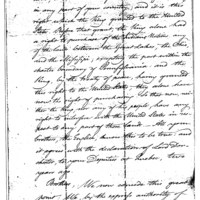 in any part of your country, and did this
right which the King granted to the United
States. Before that grant, the King alone had
the right to purchase of the Indian Nations any
of the lands between the Great Lakes, the Ohio
and the Mississippi, excepting the part within the
charter boundary of Pennsylvania; and the
King, by the treaty of peace, having granted
this right to the United States, they alone have
now the right of purchasing. So that now, neither
the King nor any of his people have any
right to interfere with the United States in
to any part of those lands
brothers, the English know this to be true; and
it agrees with the declaration of Lord Dor-
chester, to your Deputies at Quebec, two
years ago.
Brothers, We now concede this great
point. We, by the express authority of